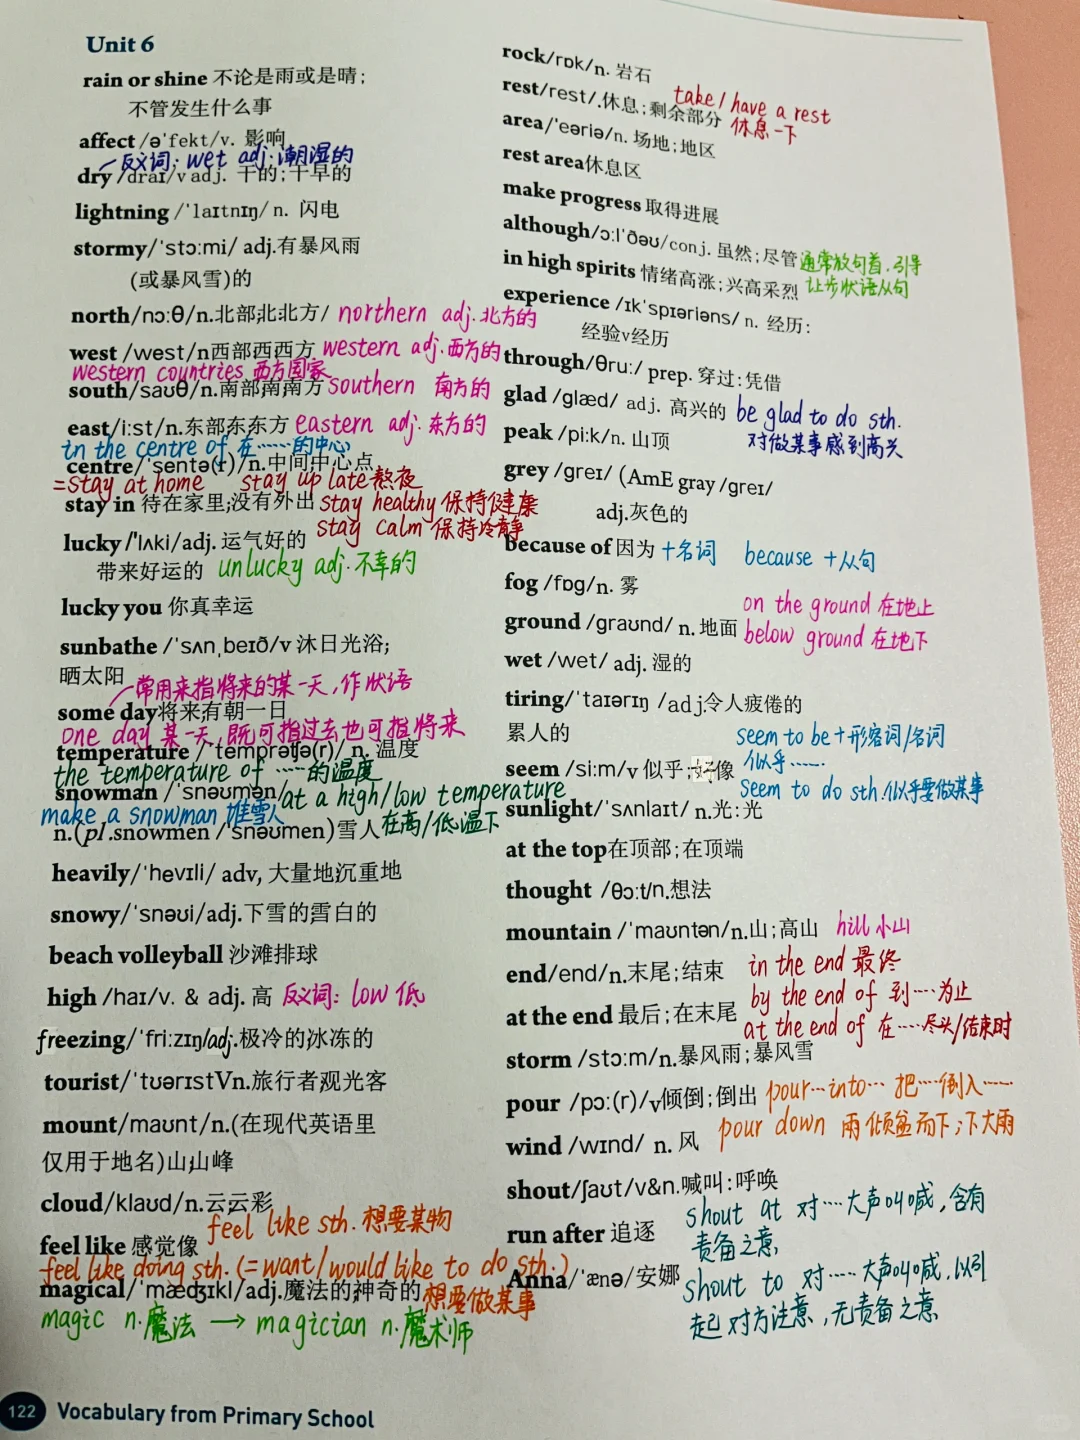 Unit 6
rain or shine 不论是雨或是晴;
不管发生什么事
affect /əˈfekt/v. 影响
反义词: wet adj. 潮湿的
dry /draɪ/v adj. 干的;干旱的
lightning /ˈlaɪtnɪŋ/ n. 闪电
stormy/ˈstɔːmi/ adj.有暴风雨
(或暴风雪)的
north/nɔːθ/n.北部北北方/ northern adj.北方的
west /west/n西部西西方 western adj.西方的
western countries 西方国家
south/saʊθ/n.南部南南方 southern 南方的
east/iːst/n.东部东东方 eastern adj.东方的
in the centre of 在……的中心
centre/ˈsentə(r)/n.中间中心点
=stay at home stay up late熬夜
stay in 待在家里;没有外出 stay healthy 保持健康
stay calm 保持冷静
lucky /ˈlʌki/adj. 运气好的
带来好运的 unlucky adj.不幸的
lucky you 你真幸运
sunbathe /ˈsʌnˌbeɪð/v 沐日光浴;
晒太阳
常用来指将来的某一天,作状语
some day将来有朝一日
one day 某一天,既可指过去也可指将来
temperature /ˈtemprətʃə(r)/ n. 温度
the temperature of ……的温度
snowman /ˈsnəʊmən/ at a high/low temperature
make a snowman 堆雪人 在高/低温下
n.(pl.snowmen /ˈsnəʊmen)雪人
heavily/ˈhevɪli/ adv, 大量地沉重地
snowy/ˈsnəʊi/adj.下雪的雪白的
beach volleyball 沙滩排球
high /haɪ/v. & adj. 高 反义词: low 低
freezing/ˈfriːzɪŋ/adj.极冷的冰冻的
tourist/ˈtʊərɪstVn.旅行者观光客
mount/maʊnt/n.(在现代英语里
仅用于地名)山山峰
cloud/klaʊd/n.云云彩
feel like sth. 想要某物
feel like 感觉像
feel like doing sth. (=want/would like to do sth.)
magical/ˈmædʒɪkl/adj.魔法的神奇的 想要做某事
magic n.魔法 → magician n.魔术师
122 Vocabulary from Primary School
rock/rɒk/n. 岩石
take/have a rest
rest/rest/.休息;剩余部分 休息一下
area/ˈeəriə/n. 场地;地区
rest area休息区
make progress 取得进展
although/ɔːlˈðəʊ/conj. 虽然;尽管 通常放句首.引导
in high spirits 情绪高涨;兴高采烈 让步状语从句
experience /ɪkˈspɪəriəns/ n. 经历:
经验v经历
through/θruː/ prep. 穿过:凭借
glad /ɡlæd/ adj. 高兴的 be glad to do sth.
对做某事感到高兴
peak /piːk/n. 山顶
grey /ɡreɪ/ (AmE gray /ɡreɪ/
adj.灰色的
because of 因为 +名词 because +从句
fog /fɒɡ/n. 雾
on the ground 在地上
ground /ɡraʊnd/ n. 地面 below ground 在地下
wet /wet/ adj. 湿的
tiring/ˈtaɪərɪŋ /adj令人疲倦的
累人的
seem to be +形容词/名词
似乎……
seem /siːm/v 似乎;好像 seem to do sth.似乎要做某事
sunlight/ˈsʌnlaɪt/ n.光:光
at the top在顶部;在顶端
thought /θɔːt/n.想法
mountain /ˈmaʊntən/n.山;高山 hill 小山
in the end 最终
end/end/n.末尾;结束 by the end of 到……为止
at the end 最后;在末尾 at the end of 在……尽头/结束时
storm /stɔːm/n.暴风雨;暴风雪
pour /pɔː(r)/v倾倒;倒出 pour…into… 把…倒入……
pour down 雨倾盆而下;下大雨
wind /wɪnd/ n. 风
shout/ʃaʊt/v&n.喊叫:呼唤
shout at 对…大声叫喊,含有
责备之意
run after 追逐
Anna/ˈænə/安娜 shout to 对……大声叫喊.以引
起对方注意,无责备之意